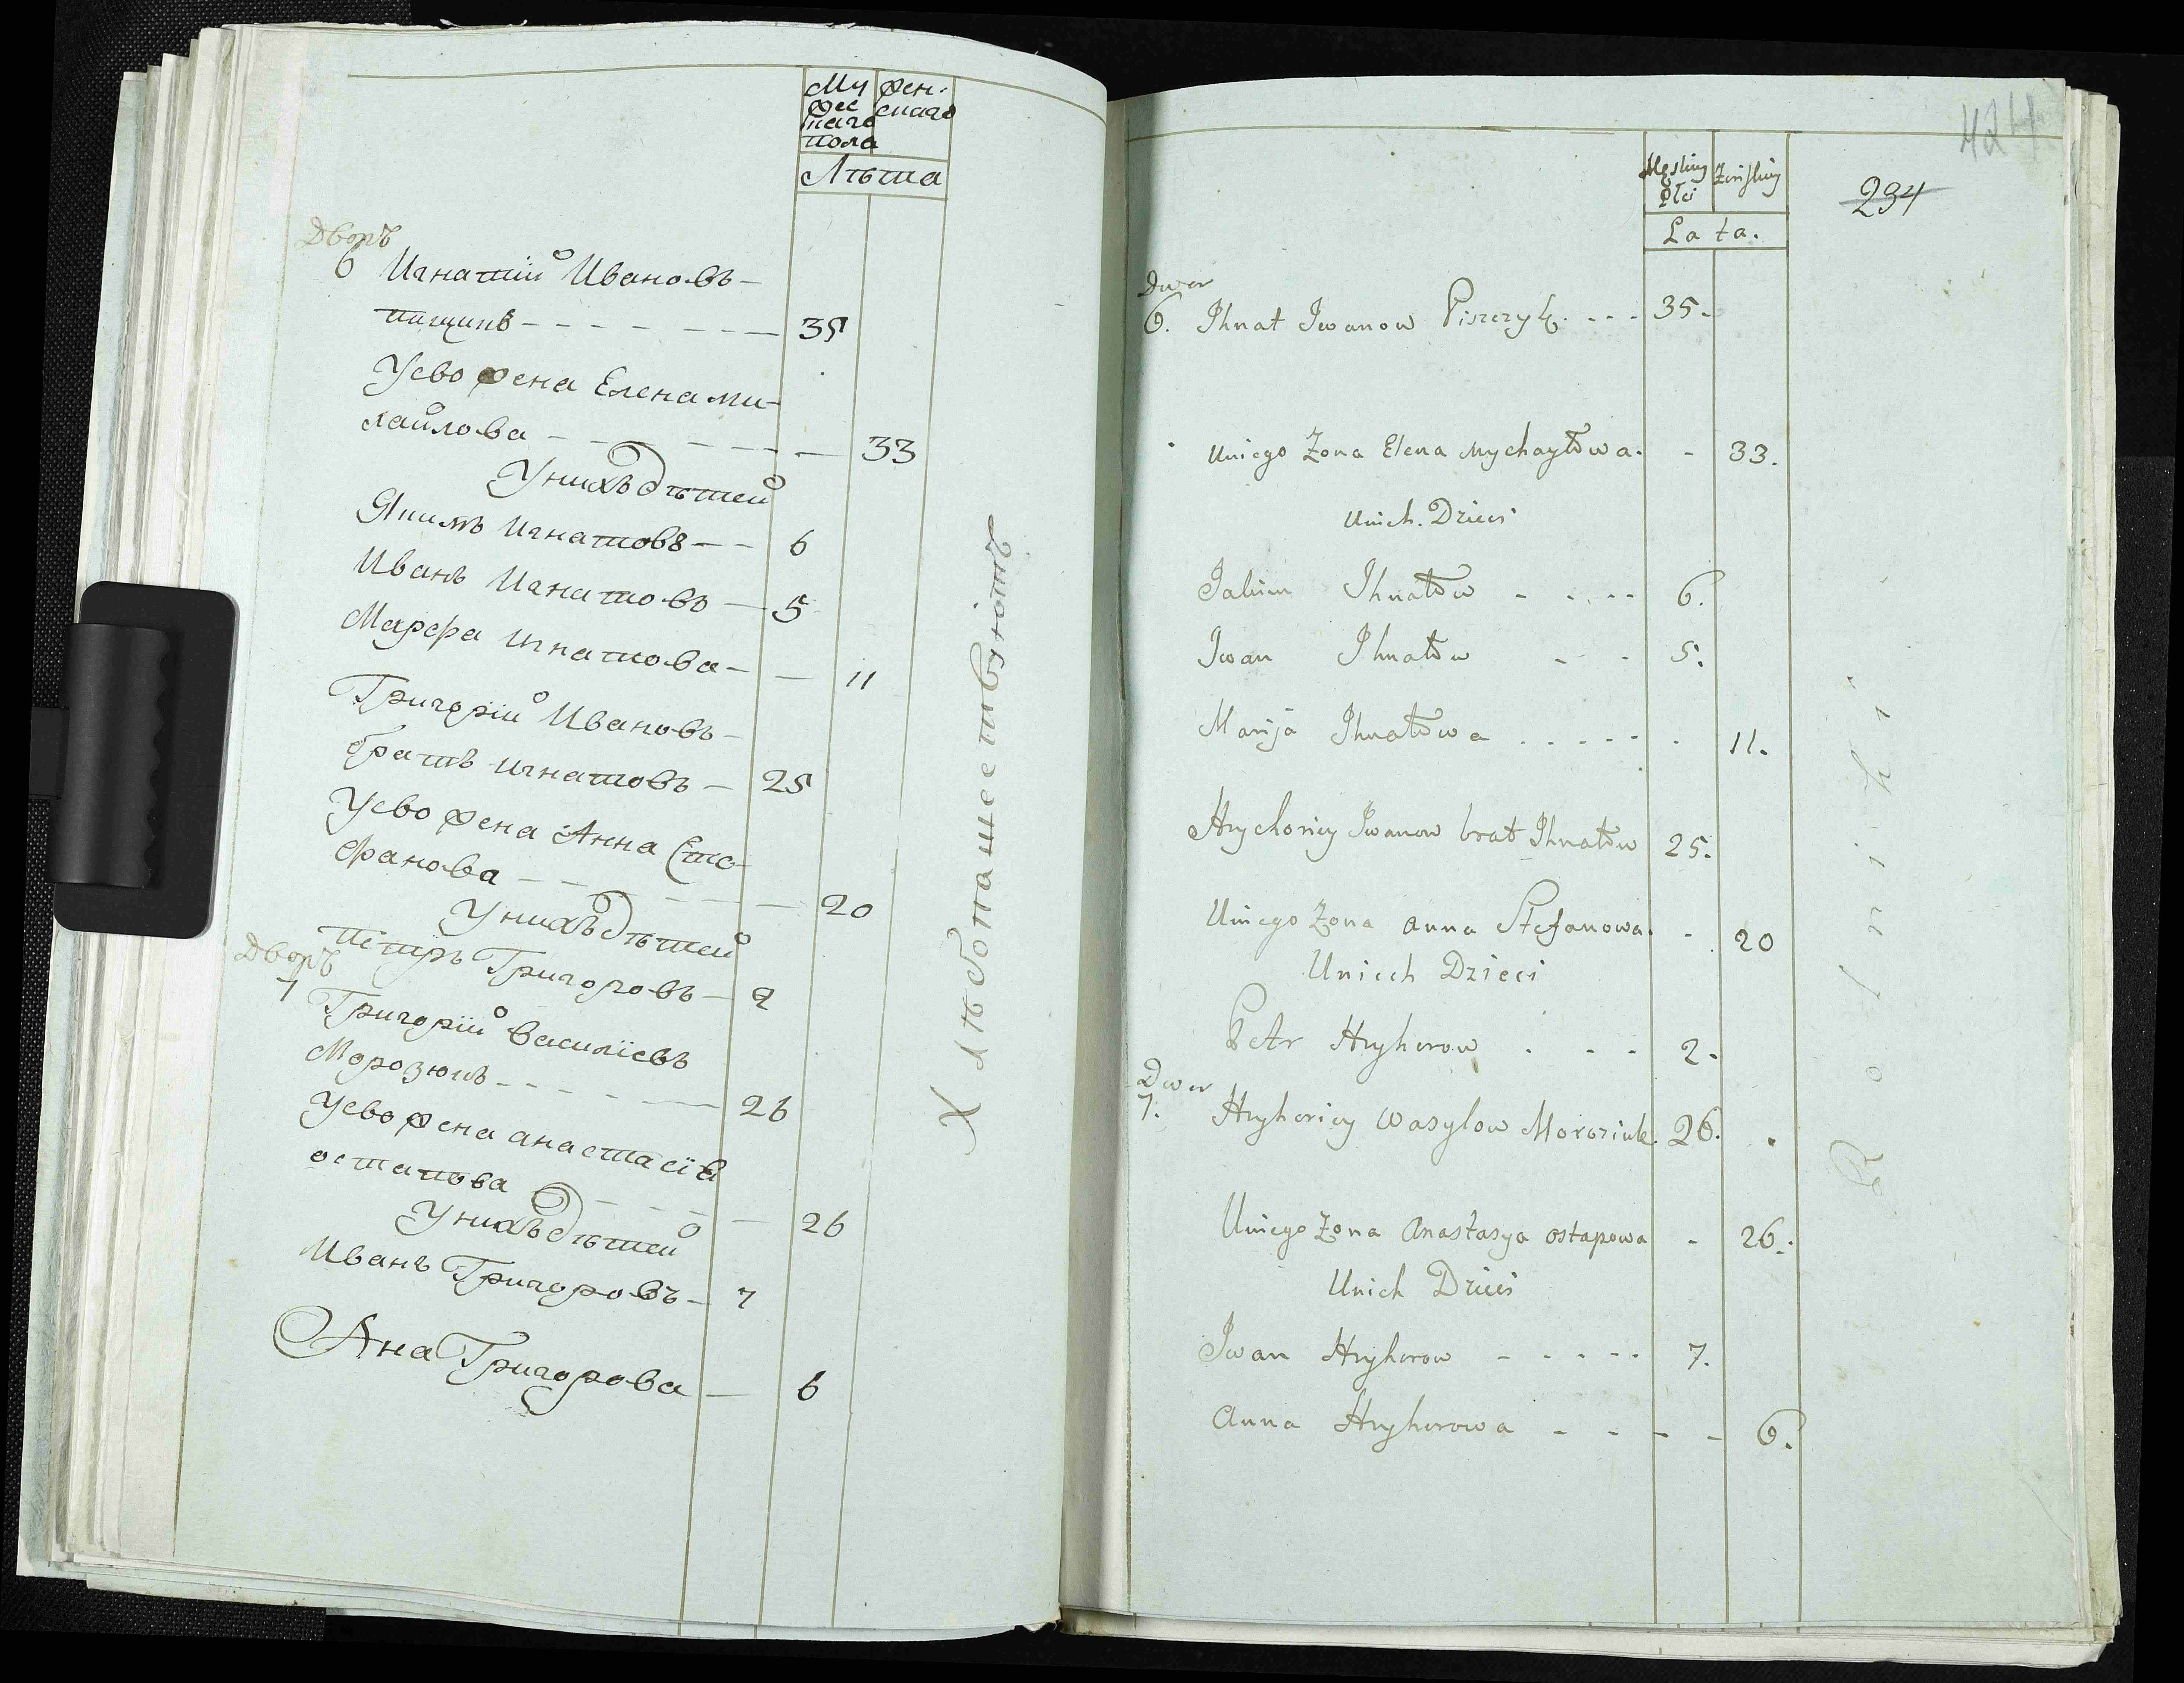 Му
жес
каго
пола
Жен.
скаго
Лѣта
Дворъ
6 Игнатiй Ивановъ
пищикъ 35
Уево жена Елена ми-
хайлова 33
У нихъ дѣтей
Якимъ Игнатовъ 6
Иванъ Игнатовъ 5
Марфа Игнатова 11
Григорiй Ивановъ
братъ игнатовъ 25
Уево жена Анна Сте-
фанова 20
У нихъ дѣтей
петръ Григоровъ 2
Дворъ
7 Григорiй Василiевъ
Морозюкъ 26
Уево жена анастасiя
остапова 26
У нихъ дѣтей
Иванъ Григоровъ 7
Ана Григорова 6
Хлѣбопашествуютъ
424
234
Męskiey Płci
Zeńskiey
Lata.
Dwor
6. Ihnat Iwanow Piszczyk 35.
Uniego Zona Elena Mychayłowa. 33.
Unich Dzieci
Iakim Ihnatow 6.
Iwan Ihnatow 5.
Marija Ihnatowa 11.
Hrychoriey Iwanow brat Ihnatow 25.
Uniego Zona Anna Stefanowa 20
Unich Dzieci
Petr Hryhorow 2.
Dwor
7. Hryhoriey Wasylow Moroziuk. 26.
Uniego Zona Anastasya Ostapowa 26.
Unich Dzieci
Iwan Hryhorow 7.
Anna Hryhorowa 6.
Rolniki